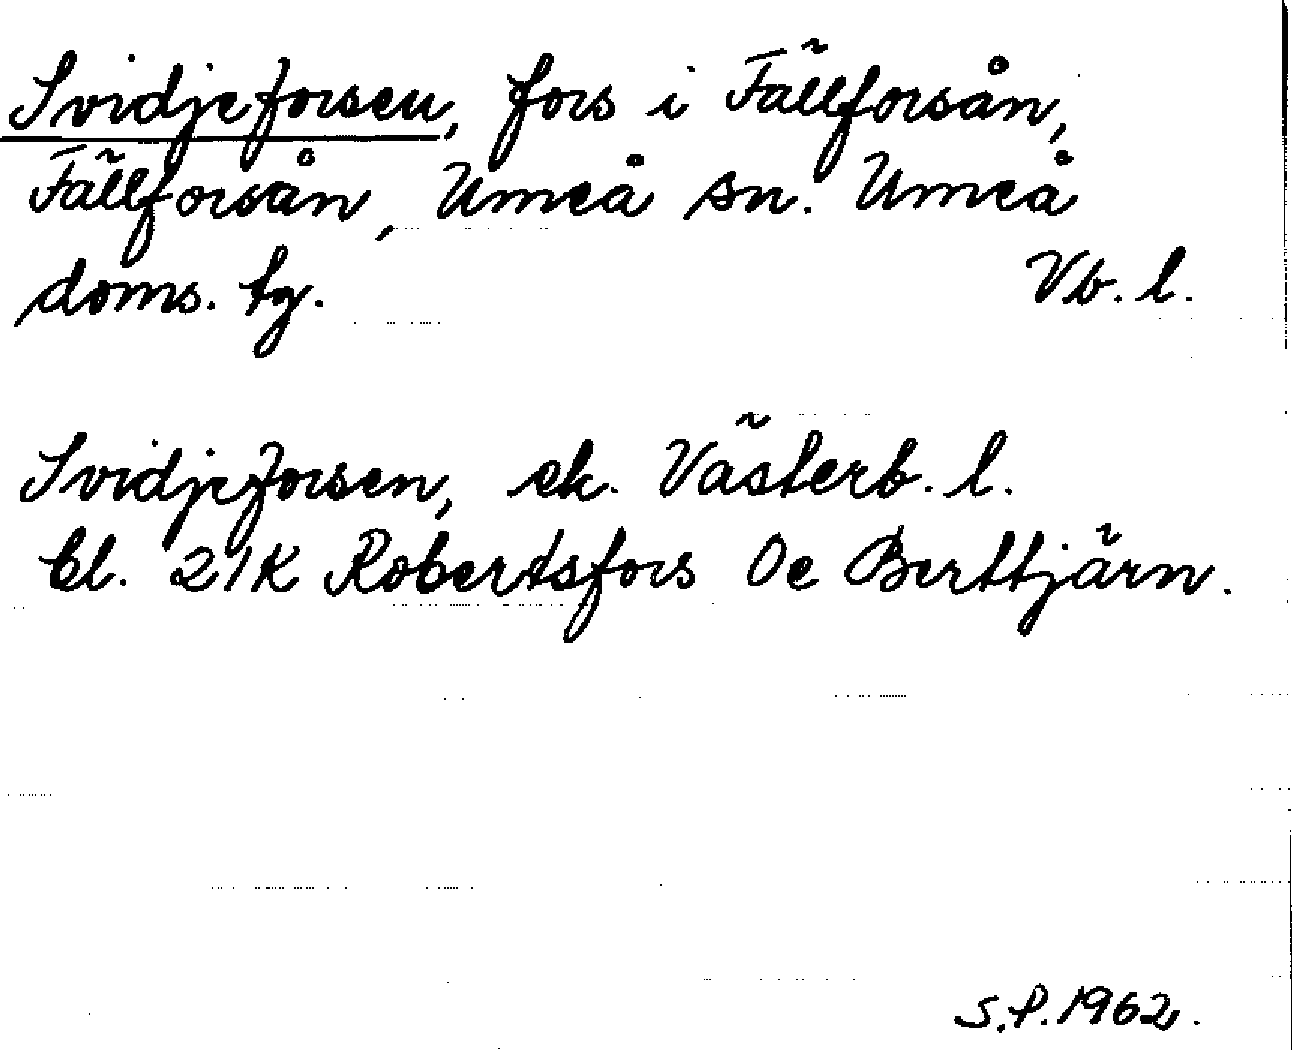 Svidjeforsen, fors i Fällforsån,
Fällforsån, Umeå sn. Umeå
doms. tg. Vb. l.
Svidjeforsen, ek. Västerb. l.
bl. 21K Robertsfors Oe Berttjärn.
S.P. 1962.